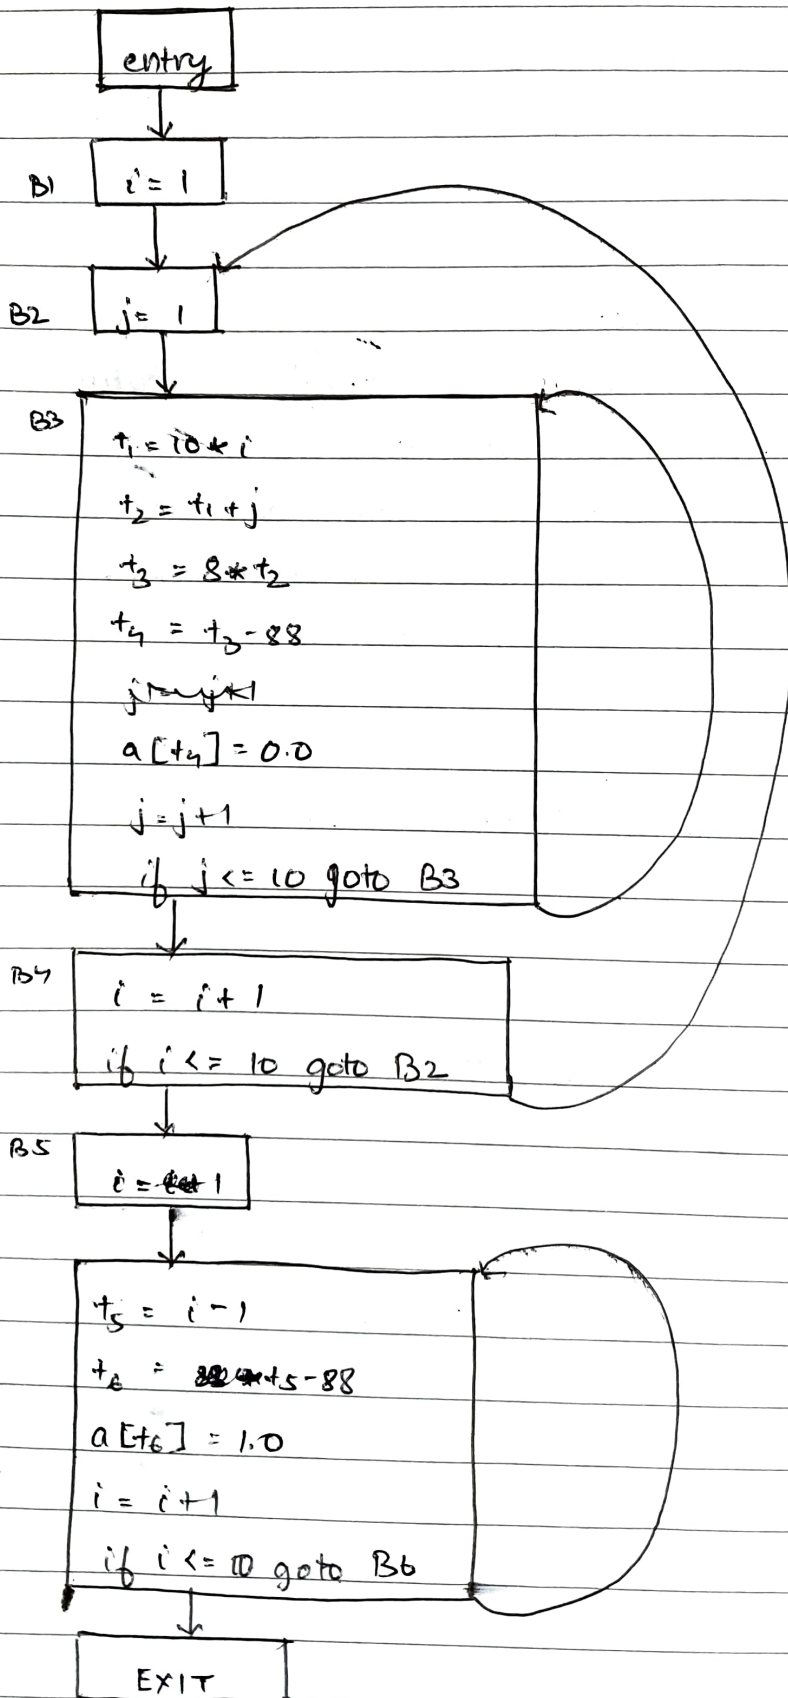 entry
B1
i = 1
B2
j = 1
B3
t1 = 10 * i
t2 = t1 + j
t3 = 8 * t2
t4 = t3 - 88
a[t4] = 0.0
j = j+1
if j <= 10 goto B3
B4
i = i + 1
if i <= 10 goto B2
B5
i = 1
t5 = i - 1
t6 = t5 - 88
a[t6] = 1.0
i = i+1
if i <= 10 goto B6
EXIT